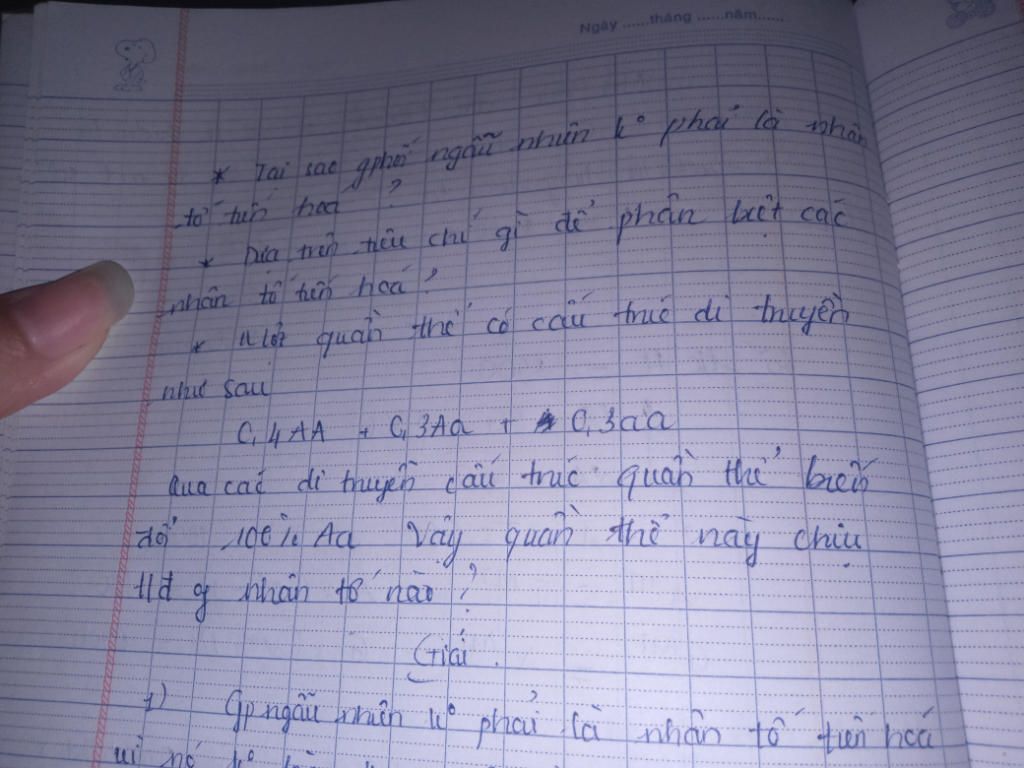 Ngày ......tháng ......năm......
* Tại sao gphối ngẫu nhiên ko phải là nhân
tố tiến hoá ?
* Dựa trên tiêu chí gì để phân biệt các
nhân tố tiến hoá ?
* Một quần thể có cấu trúc di truyền
như sau
0,4AA + 0,3Aa + 0,3aa
Qua các di truyền cấu trúc quần thể biến
đổi 100% Aa Vậy quần thể này chịu
tđ g nhân tố nào ?
Giải
1) Gp ngẫu nhiên ko phải là nhân tố tiến hoá
vì nó ko